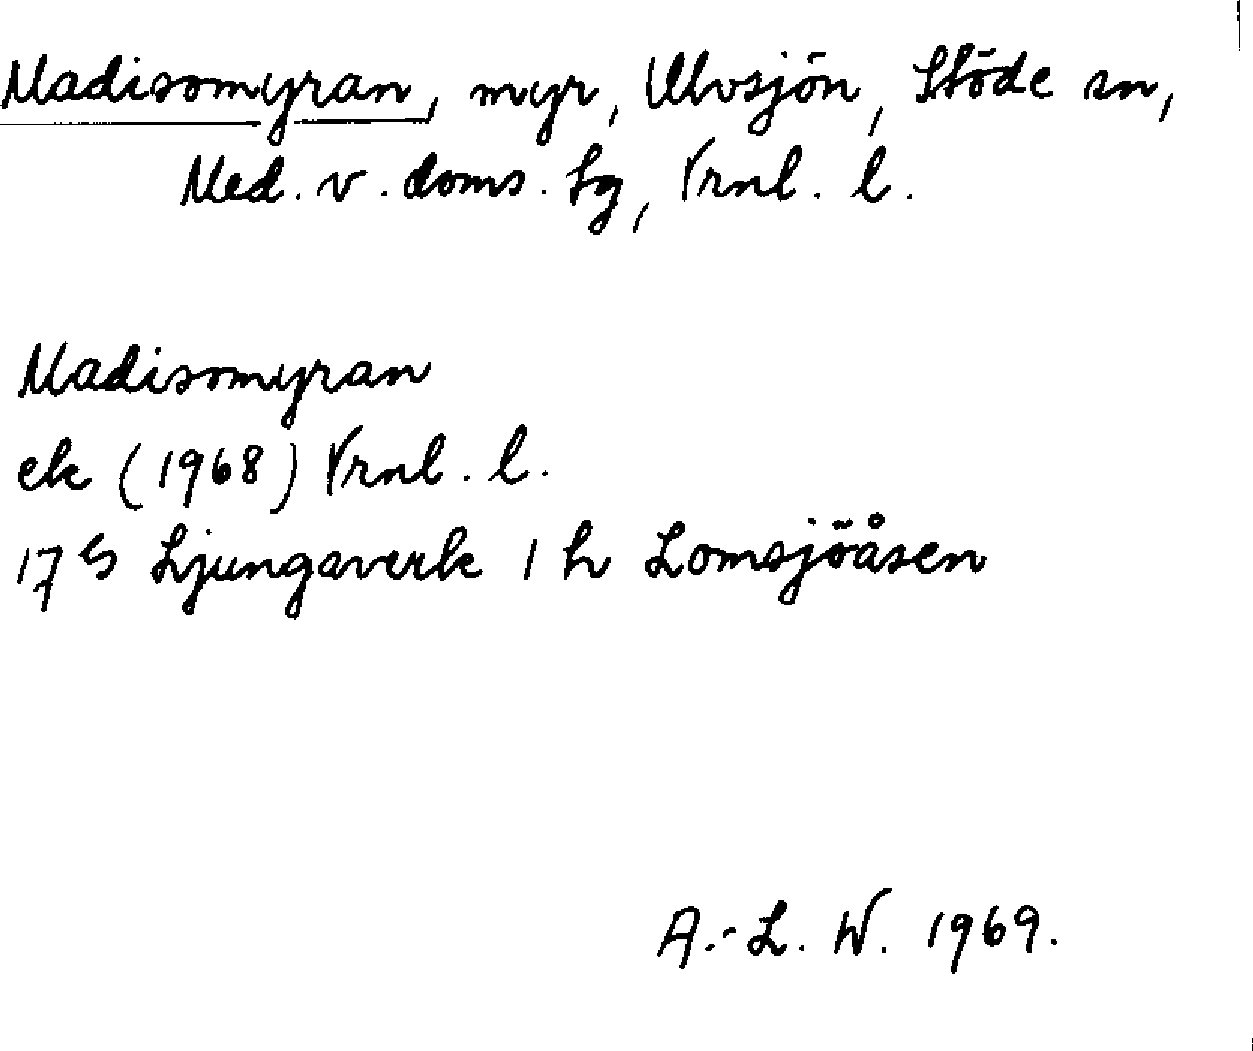 Madisomyran, myr, Ulvsjön, Stöde sn,
Med. v. doms. tg, Vrnl. l.
Madisomyran
ek (1968) Vrnl. l.
17 G Ljungaverk 1 h Lomsjöåsen
A.-L. W. 1969.